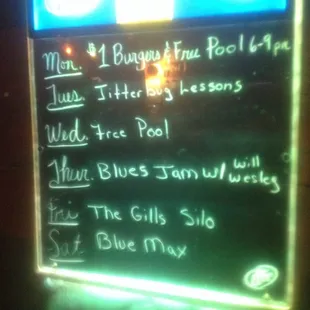 Mon. $1 Burgers & Free Pool 6-9pm
Tues. Jitterbug Lessons
Wed. Free Pool
Thur. Blues Jam w/ Will Wesley
Fri The Gills Silo
Sat. Blue Max